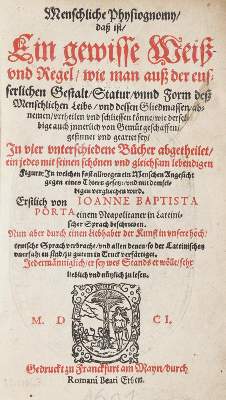 Menschliche Physiognomy/
daß ist/
Ein gewisse Weiß
vnd Regel/ wie man auß der eus-
serlichen Gestalt/ Statur/ vnnd Form deß
Menschlichen Leibs/ vnd dessen Gliedmassen/ ab-
nemen/ vrtheilen vnd schliessen könne/ wie dersel-
bige auch innerlich von Gemüt geschaffen/
gesinnet vnd geartet sey/
In vier vnterschiedene Bücher abgetheilet/
ein jedes mit seinen schönen vnd gleichsam lebendigen
Figurn: In welchen fast allwegen ein Menschen Angesicht
gegen eines Thiers gesetzt/ vnd mit demsel-
bigen verglichen wird.
Erstlich von IOANNE BAPTISTA
PORTA einem Neapolitaner in Lateini-
scher Sprach beschrieben.
Nun aber durch einen Liebhaber der Kunst in vnsere hoch/
teutsche Sprach verbracht/ vnd allen denen/ so der Lateinischen
vnerfahren sind/ zu gutem in Truck verfertiget.
Jedermänniglich/ er sey wes Stands er wölle/ sehr
lieblich vnd nützlich zu lesen.
M. D CI.
Gedruckt zu Franckfurt am Mayn/ durch
Romani Beati Erben.